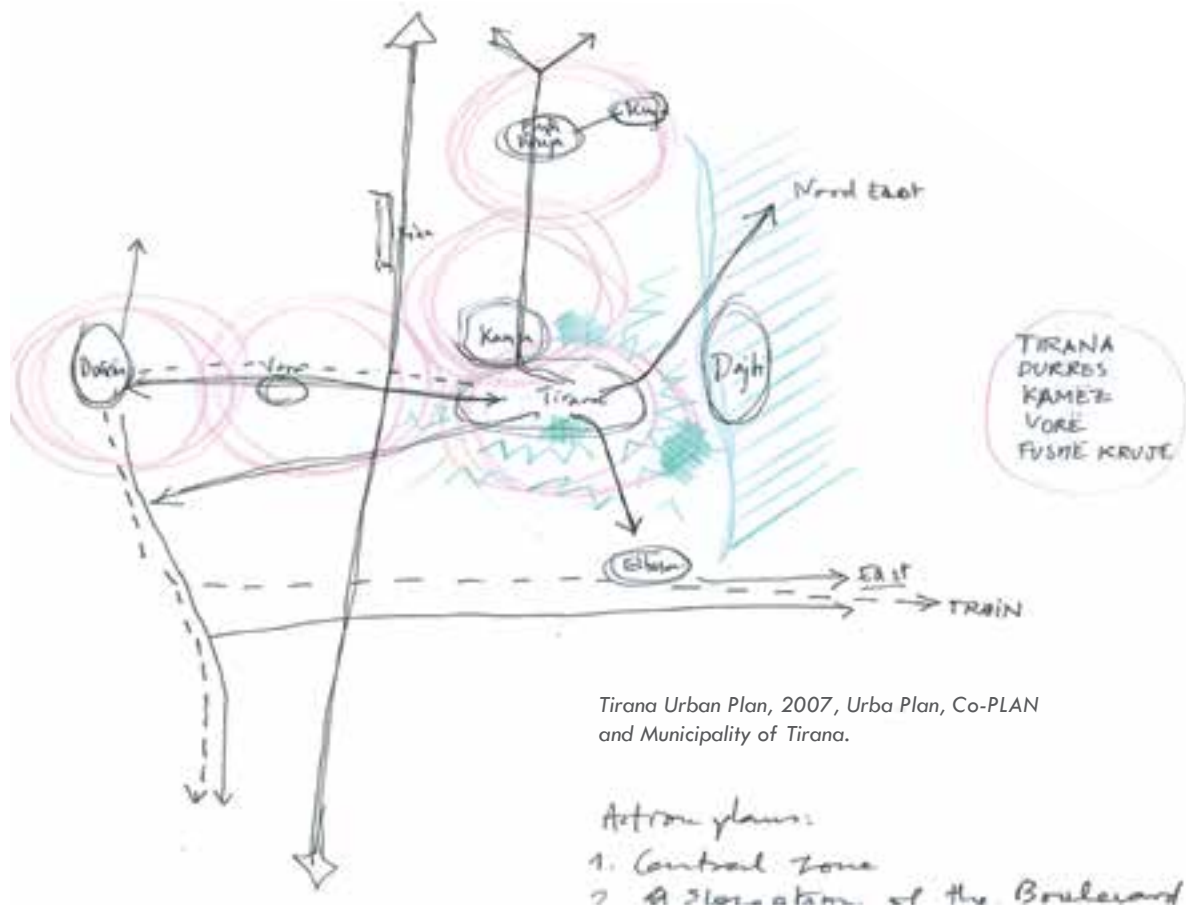 Nord East
Kruja
Durres
Vore
Tirana
Dajti
TIRANA
DURRES
KAMEZ
VORË
FUSHË KRUJË
Elbasan
East
TRAIN
Tirana Urban Plan, 2007, Urba Plan, Co-PLAN
and Municipality of Tirana.
Action plans:
1. Central zone
2. Elongation of the Boulevard